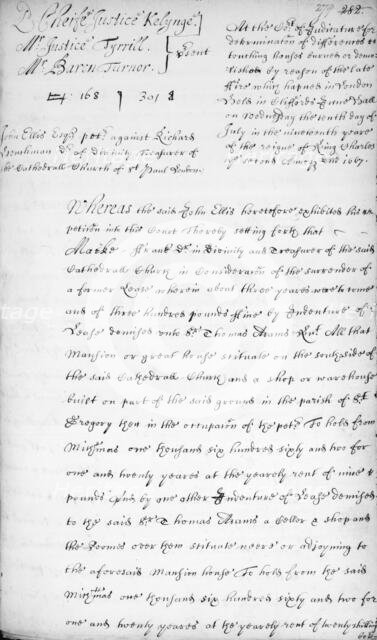 279 282
Ld Cheife Justice Kelynge
Mr Justice Tyrrill
Mr Baron Turnor
Prsent
168 301
At the Cort of Judicature for
determinacon of differences
touching houses burned or demo-
lished by reason of the late
ffire which hapned in London
held in Cliffords Inne Hall
on Wednesday the tenth day of
July in the nineteenth yeare
of the reigne of King Charles
the second Anno Dni 1667
John Ellis Esqr petr against Richard
Dr of Divinity Treasurer of
the Cathedrall Church of St Paul London
Whereas the said John Ellis heretofore exhibited his
peticion into the Court Thereby setting forth that
Marke ffranck Dr in Divinity and Treasurer of the said
Cathedrall Church in Consideracon of the surrender of
a former Lease wherein about three yeares were to come
and of three hundred pounds ffine by Indenture of
Lease demised unto Sr Thomas Adams Knt All that
Mansion or great house scituate on the southside of
the said Cathedrall Church and a shop or warehouse
built on part of the said ground in the parish of St
Gregory then in the occupacon of the petr To hold from
Michmas one thousand six hundred sixty and two for
one and twenty yeares at the yearely rent of nine
pounds And by one other Indenture of Lease demised
to the said Sr Thomas Adams a Cellor & shop and
the Roomes over them scituate neere or adjoyning to
the aforesaid Mansion house To hold from the said
Michmas one thousand six hundred sixty and two for
one and twenty yeares at the yearely rent of twenty shillings